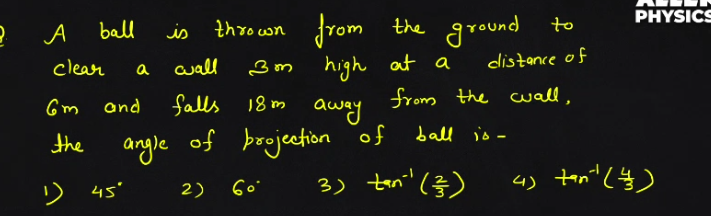 PHYSICS
A ball is thrown from the ground to
clear a wall 3m high at a distance of
6m and falls 18m away from the wall,
the angle of projection of ball is -
1) 45° 2) 60° 3) tan⁻¹(2/3) 4) tan⁻¹(4/3)